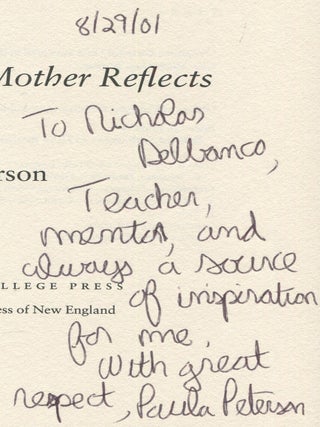 8/29/01
Mother Reflects
To Nicholas
Delbanco,
erson
Teacher,
mentor, and
always a source
LLEGE PRESS
of inspiration
ess of New England
for me.
With great
respect, Paula Peterson